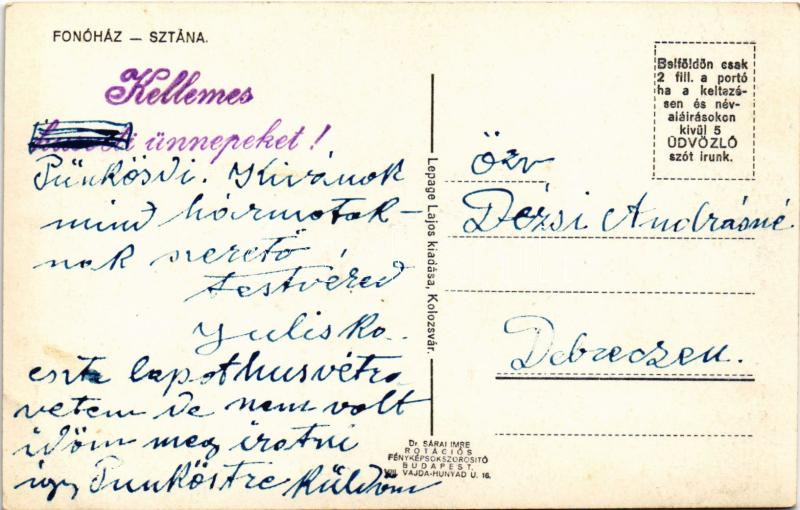 FONÓHÁZ — SZTÁNA.
Kellemes
ünnepeket!
Pünkösdi. Kivánok
mind hármotok-
nak szerető
testvéred
Juliska.
ezt lapot husvétra
vetem de nem volt
időm meg iratni
igy Punköstre küldöm
Lepage Lajos kiadása, Kolozsvár.
Belföldön csak
2 fill. a portó
ha a keltezé-
sen és név-
aláirásokon
kivül 5
ÜDVÖZLŐ
szót irunk.
Özv
Dézsi Andrásné
Debreczen.
Dr SÁRAI IMRE
ROTÁCIÓS
FÉNYKÉPSOKSZOROSITÓ
BUDAPEST,
VIII. VAJDA-HUNYAD U. 16.